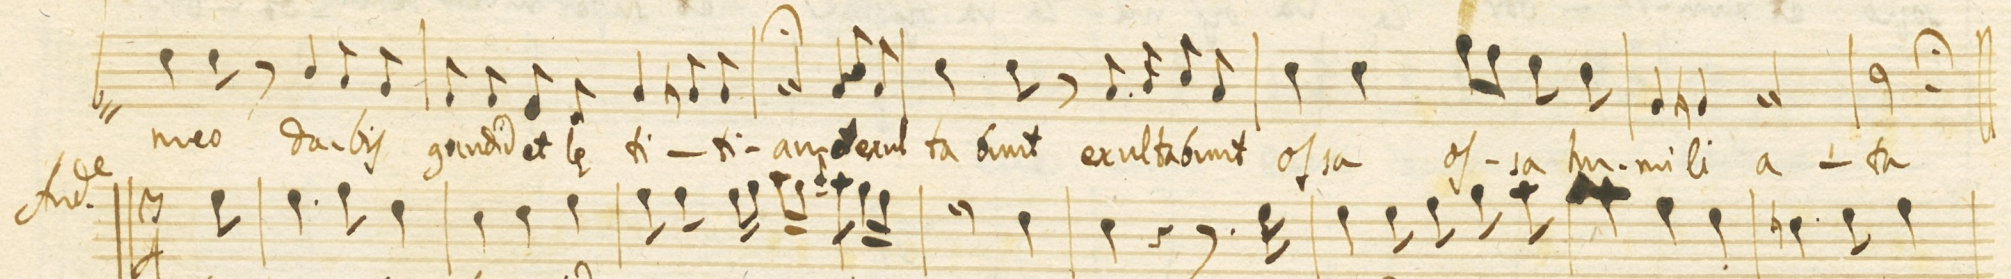 meo da-bis gaudiũ et lę ti-ti-am et exul ta bunt exultabunt ossa os-sa hu-mi li a-ta
And.e